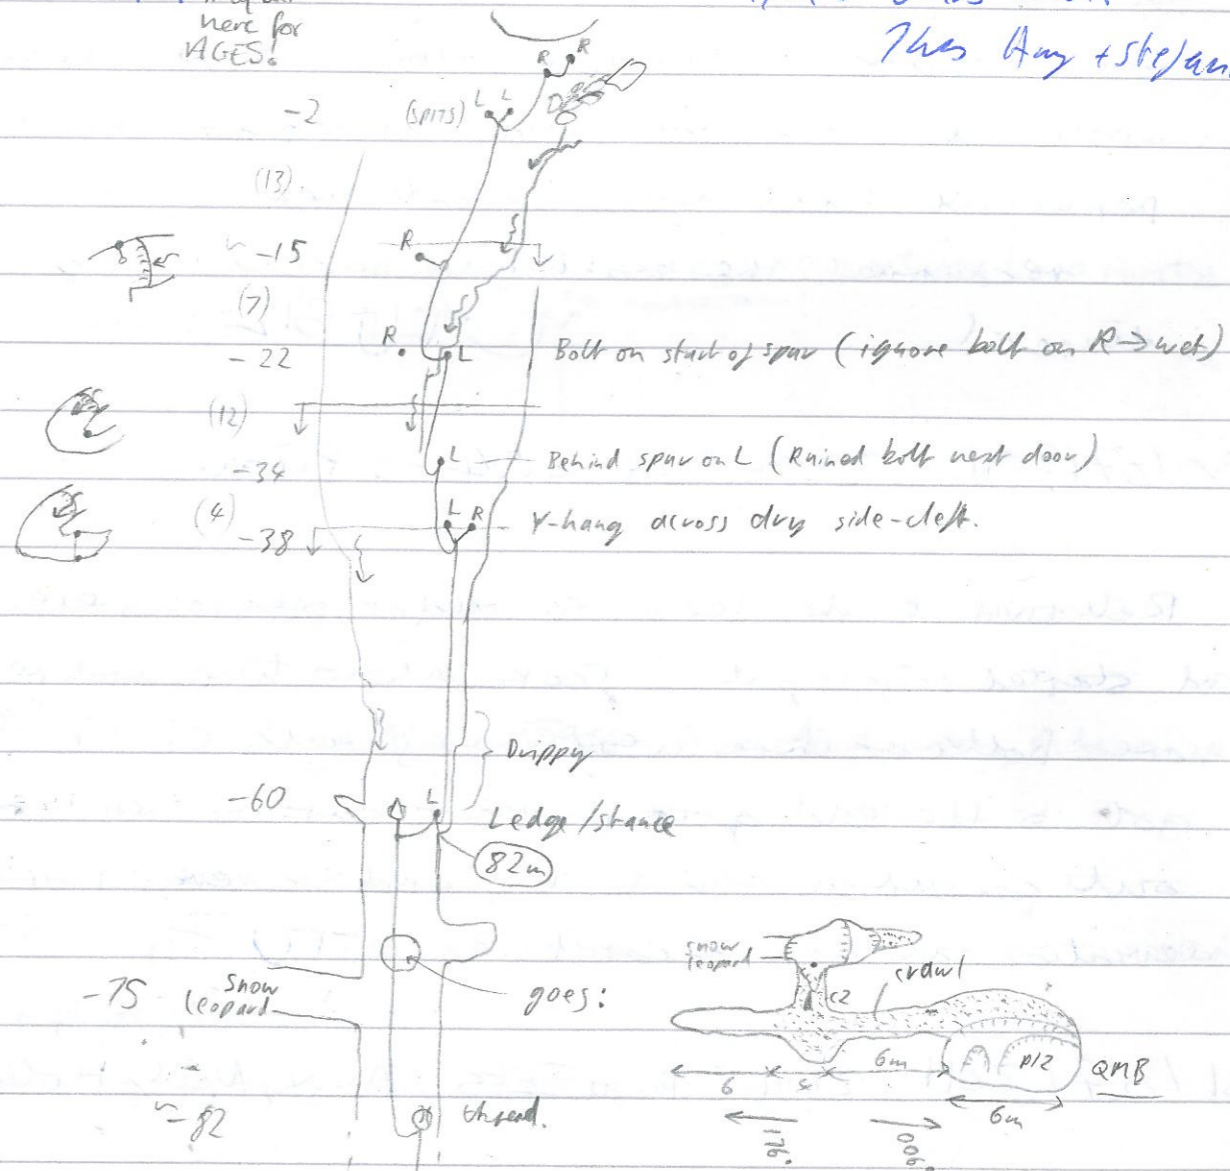 here for
AGES!
R R
-2 (SPITS) L L
(13)
~ -15 R
(7)
-22 R L Bolt on start of spur (ignore bolt on R → wet)
(12)
-34 L Behind spur on L (Ruined bolt next door)
(4)
-38 L R Y-hang across dry side-cleft.
Drippy
-60 L Ledge/stance
82m
-75 Snow
leopard
goes:
snow
leopard
crawl
C2
6 4 6m P12 QMB
6m
176°
006°
~-82 thread.